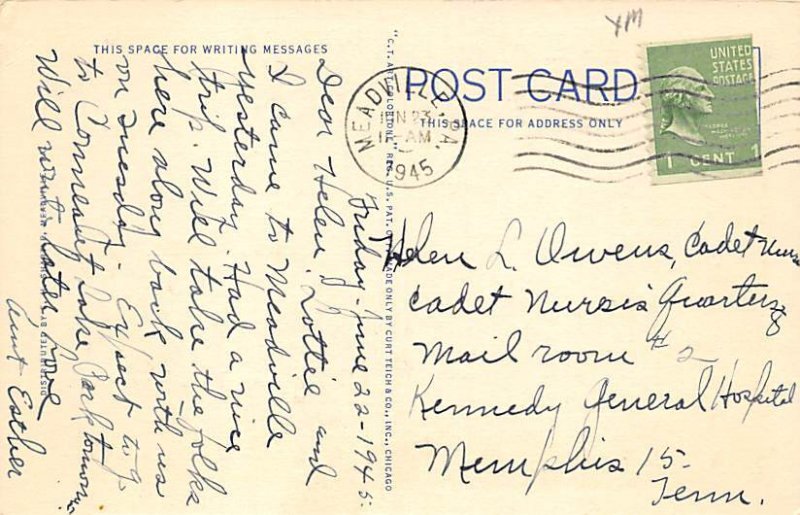 YM
THIS SPACE FOR WRITING MESSAGES
Friday - June 22 - 1945.
Dear Helen:
Lottie and
I came to Meadville
yesterday. Had a nice
trip. Will take the folks
here along back with us
on Tuesday. Expect to go
to Conneaut Lake Park tomorrow.
Will write later. Love
Aunt Esther
"C.T. ART-COLORTONE" REG. U.S. PAT. OFF. MADE ONLY BY CURT TEICH & CO., INC., CHICAGO
POST CARD
THIS SPACE FOR ADDRESS ONLY
MEADVILLE, PA.
JUN 23
AM
1945
UNITED
STATES
POSTAGE
1 CENT 1
Helen L. Owens, Cadet Nurse
Cadet Nurses Quarters
Mail room #2
Kennedy General Hospital
Memphis 15-
Tenn.
DISTRIBUTED BY